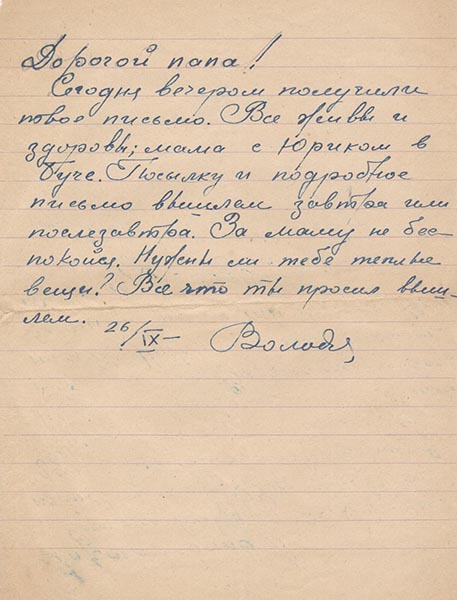 Дорогой папа!
Сегодня вечером получили
твое письмо. Все живы и
здоровы; мама с Юриком в
Буче. Посылку и подробное
письмо вышлем завтра или
послезавтра. За маму не бес-
покойся. Нужны ли тебе теплые
вещи? Все что ты просил выш-
лем. 26/IX– Володя